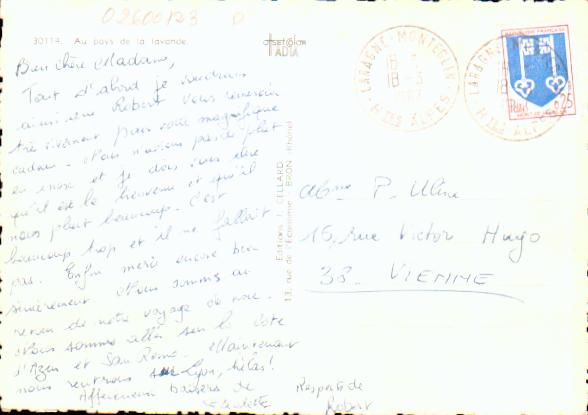 02600123 D
30114. Au pays de la lavande.
offset color
IADIA
Bien chère Madame,
Tout d'abord je voudrais
ainsi que Robert vous remercier
très vivement pour votre magnifique
cadeau. Nous n'avions pas de plat
en inox et je dois vous dire
qu'il est le bienvenu et qu'il
nous plait beaucoup. C'est
beaucoup trop et il ne fallait
pas. Enfin merci encore bien
sincèrement. Nous sommes au
retour de notre voyage de noce.
Nous sommes allés sur la Côte
d'Azur et San Remo. Maintenant
nous rentrons sur Lyon, hélas!
Affectueux baisers de
Respects de
Robert
Editions J. CELLARD
13, rue de l'Economie - BRON (Rhône)
P. Uline
15, rue Victor Hugo
38. VIENNE
LARAGNE-MONTEGLIN
18-3
HTES ALPES
LARAGNE
18
HTES ALP
REPUBLIQUE FRANÇAISE
0,25